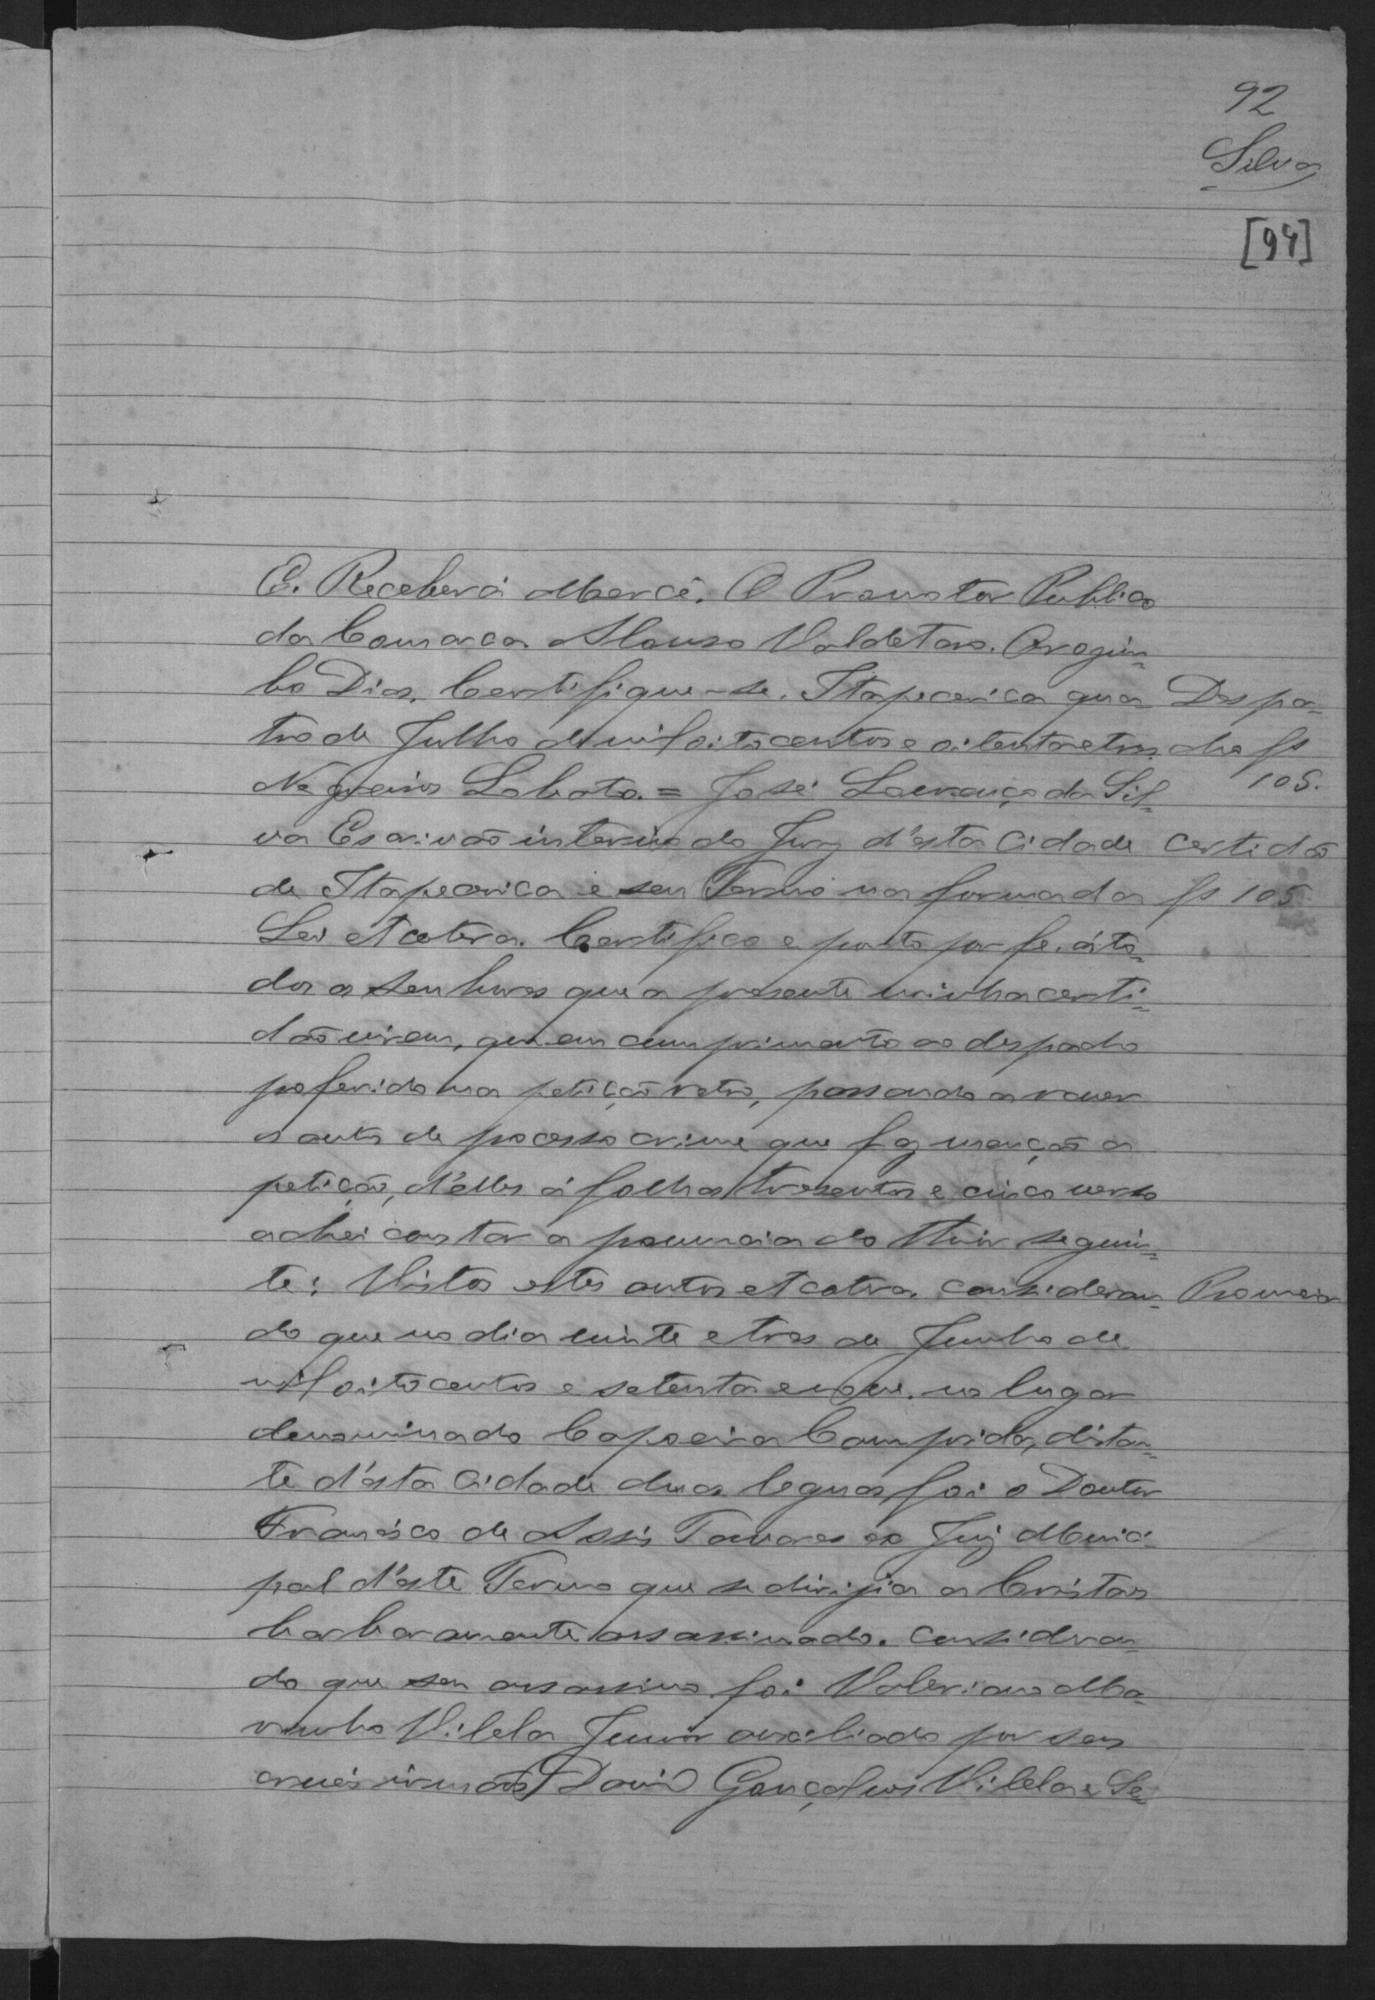 92
Silva
[94]
E. Receberá Mercê. O Promotor Publico
da Comarca Alonso Valdetaro. Aragun=
ho Dias. Certifique-se. Itapecerica qua= Despa=
tro de Julho de mil oitocentos e oitenta e tres. cho fs
Negreiros Lobato. = José Lourenço da Sil= 105.
va Escrivão interino do Jury d'esta Cidade certidão
de Itapecerica e seu Termo na forma da fs 105
Lei etcetera. Certifico e porto por fe. á to=
dos os senhores que a presente minha certi=
dão virem, que em cumprimento ao despacho
proferido na petição retro, passando a rever
os autos de processo crime que faz menção a
petição, d'elles á folhas tresentos e cinco verso
achei constar a pronuncia do theor seguin=
te: Vistos estes autos etcetera. consideran= Pronuncia
do que no dia vinte e tres de Junho de
mil oitocentos e setenta e nove. no lugar
denominado Capoeira Comprida, distan=
te d'esta Cidade duas leguas foi o Doutor
Francisco de Assis Tavares ex Juiz Munici=
pal d'este Termo que se dirijia a Cristaes
barbaramente assassinado. Consideran=
do que seu assassino foi Valeriano Ma=
rinho Vilela Junior auxiliado por seus
irmãos David Gonçalves Vilela e Se=